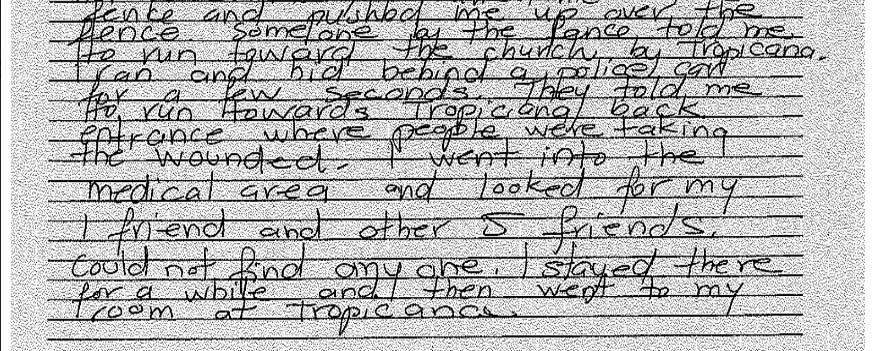 fence and pushed me up over the
fence. Someone by the fance told me
to run toward the church by Tropicana.
I ran and hid behind a police car
for a few seconds. They told me
to run towards Tropicana back
entrance where people were taking
the wounded. I went into the
medical area and looked for my
1 friend and other 5 friends.
Could not find any one. I stayed there
for a while and then went to my
room at Tropicana.